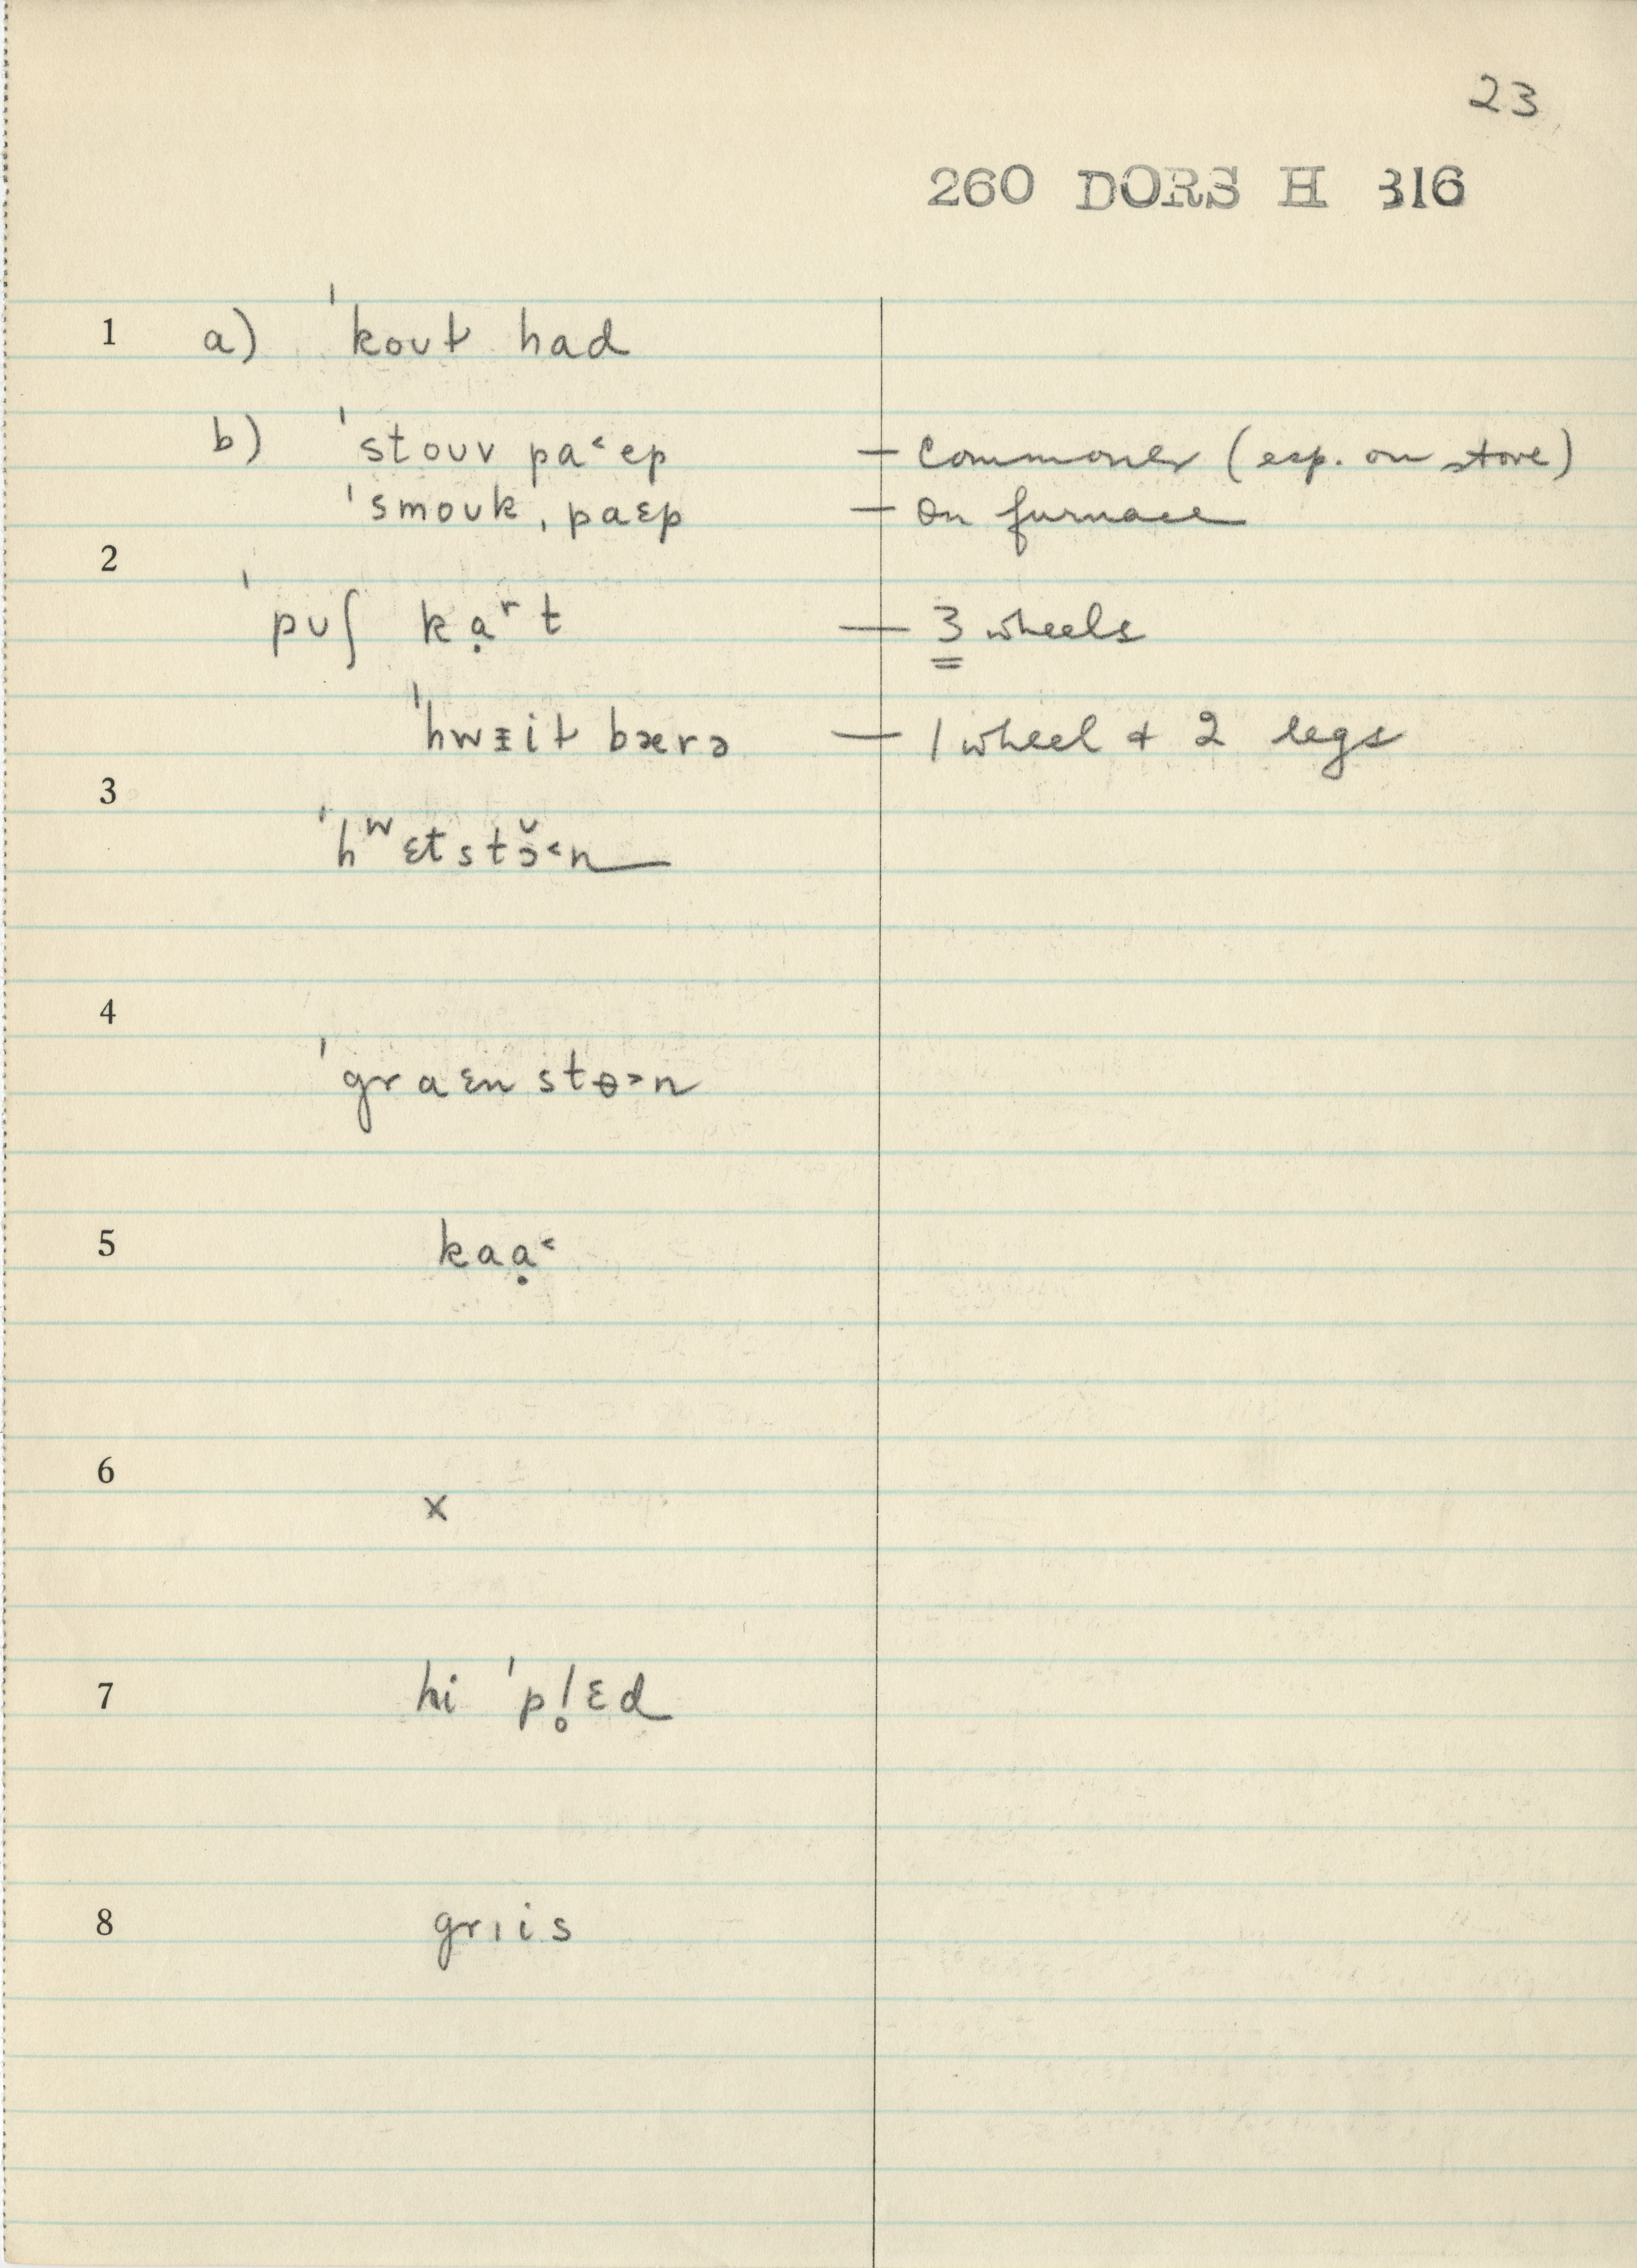 23
260 DORS H 316
1 a) ˈkoʊɫ had
b) ˈstoʊv pa˂ep — commoner (esp. on stove)
ˈsmoʊkˌpaɛp — on furnace
2
ˈpʊʃ kạʳt — 3 wheels
ˈhwᵻiɫ bærə — 1 wheel + 2 legs
3
ˈhʷɛtstɔ̆˂n
4
ˈgraɛn stɵ˃n
5 kaạ˂
6
x
7 hi ˈpl̥ɛd
8 grɪis